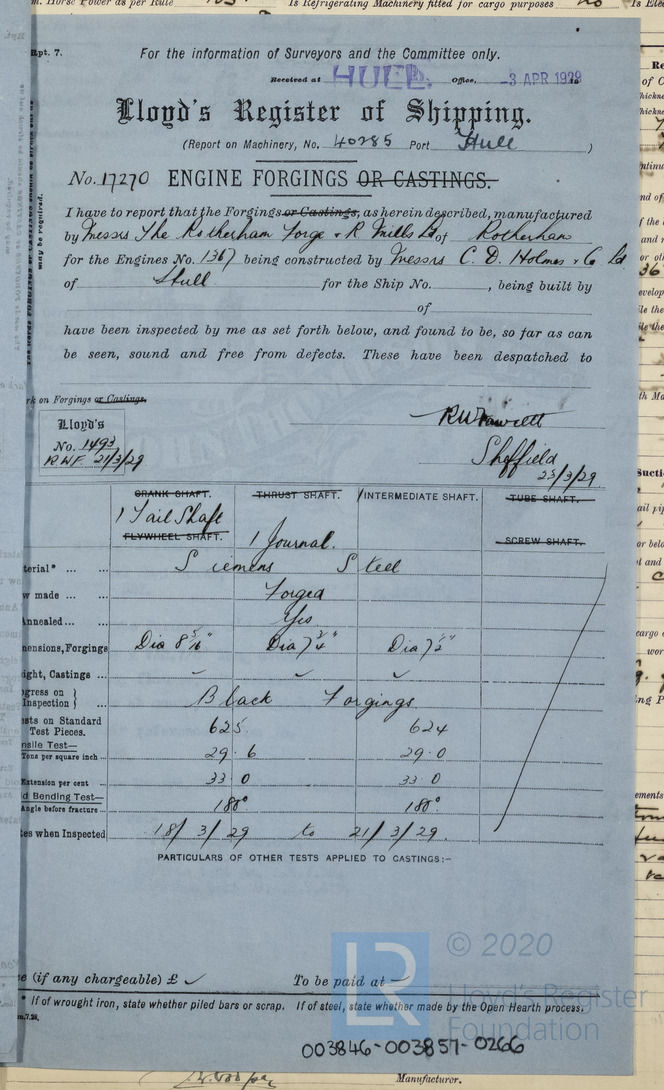 m. Horse Power as per Rule
Is Refrigerating Machinery fitted for cargo purposes no Is Elec
Rpt. 7.
For the information of Surveyors and the Committee only.
Received at HULL Office, -3 APR 1929
Lloyd's Register of Shipping.
(Report on Machinery, No. 40285 Port Hull )
No. 17270 ENGINE FORGINGS OR CASTINGS.
I have to report that the Forgings or Castings, as herein described, manufactured
by Messrs The Rotherham Forge & R Mills Ld of Rotherham
for the Engines No. 1367 being constructed by Messrs C. D. Holmes & Co Ld
of Hull for the Ship No. , being built by
of
have been inspected by me as set forth below, and found to be, so far as can
be seen, sound and free from defects. These have been despatched to
may be required.
rk on Forgings or Castings.
Lloyd's
No. 1493
R.W.F. 21/3/29
RW Fawcett
Sheffield
25/3/29
CRANK SHAFT. THRUST SHAFT. INTERMEDIATE SHAFT. TUBE SHAFT.
1 Tail Shaft
FLYWHEEL SHAFT. 1 Journal. SCREW SHAFT.
terial* ... ... Siemens Steel
w made ... ... Forged
Annealed... ... Yes
nensions, Forgings Dia 8 5/16" Dia 7 3/4" Dia 7 1/2"
ight, Castings ...
ogress on
Inspection } Black Forgings
sts on Standard
Test Pieces. 625 624
nsile Test—
Tons per square inch ... 29.6 29.0
Extension per cent 33.0 33.0
d Bending Test—
Angle before fracture... 180° 180°
tes when Inspected 18/3/29 to 21/3/29
PARTICULARS OF OTHER TESTS APPLIED TO CASTINGS:—
e (if any chargeable) £ To be paid at
* If of wrought iron, state whether piled bars or scrap. If of steel, state whether made by the Open Hearth process.
m,7,28.
© 2020
Lloyd's Register
Foundation
003846-003857-0266
Manufacturer.